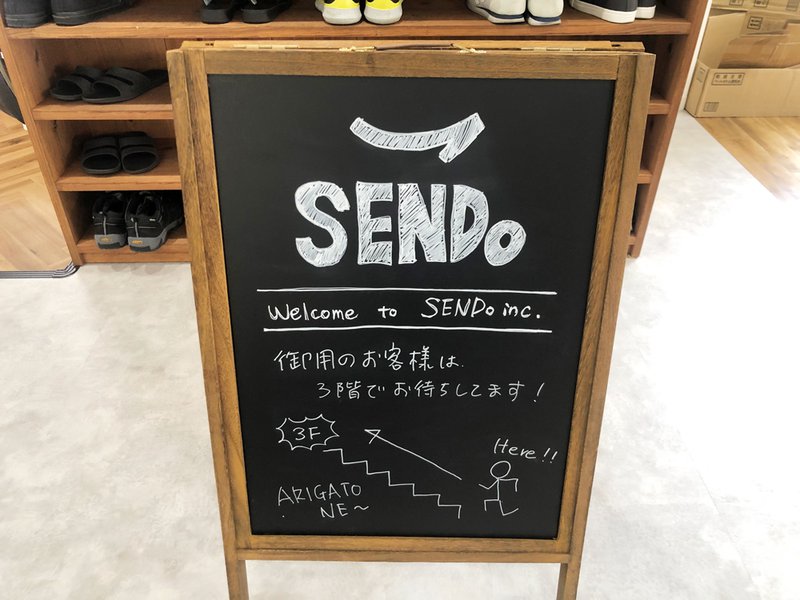 SENDo
Welcome to SENDo inc.
御用のお客様は
3階でお待ちしてます!
3F
Here!!
ARIGATO
NE~